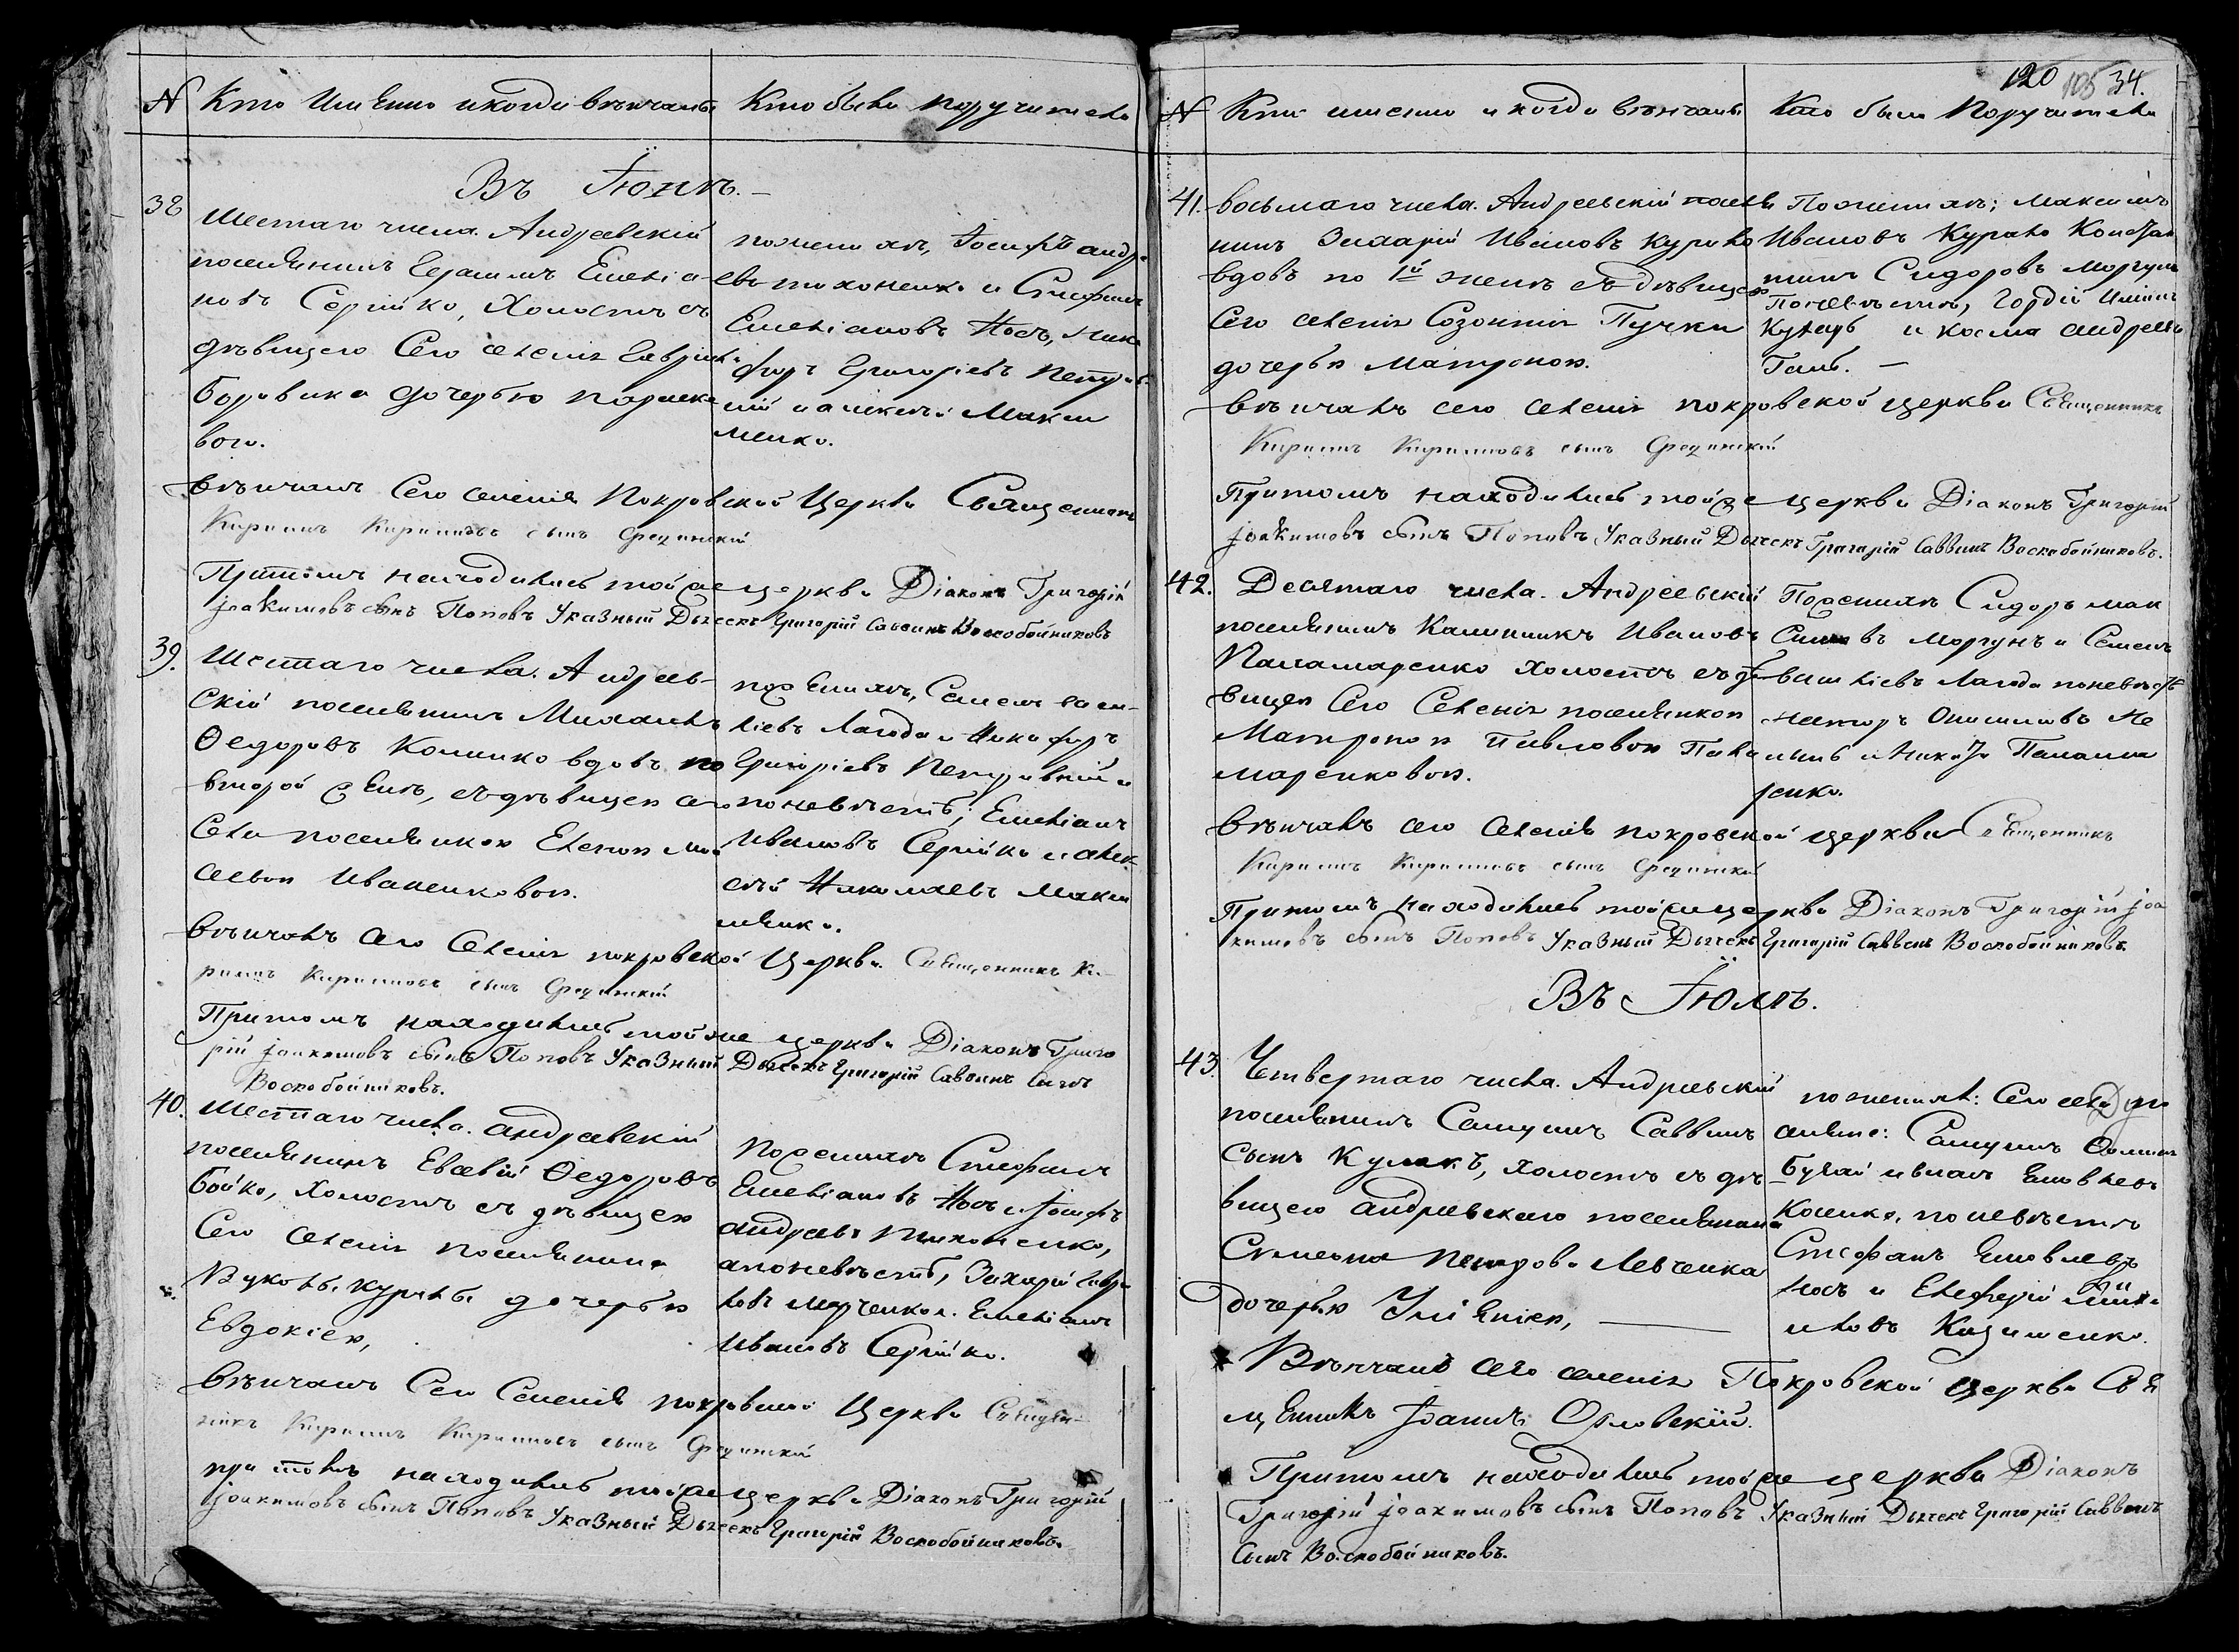 N Кто Имѣнно и когда вѣнчаны Кто были поручители
Въ Іюнѣ.
38
Шестаго числа. Андреевскій
поселянинъ Герасимъ Емелья-
новъ Серѣйко, Холостъ съ
дѣвицею Сего селенія Гаврила
Боровика дочерью Параске-
вою.
поженихѣ, Іосифъ Андре-
евъ тихоненко и Стефанъ
Емеліановъ Носъ, Ники-
форъ Григоріевъ Петров-
скій и алексѣй Макси
менко.
вѣнчалъ Сего селенія Покровской Церкви Священникъ
Кириллъ Кирилловъ сынъ
Притомъ находились тойже церкви Діаконъ Григорій
Іоакимовъ сынъ Поповъ Указный Дьячекъ Григорій Саввинъ Воскобойниковъ
39.
Шестаго числа. Андреев-
скій поселянинъ Михаилъ
Ѳедоровъ Коминко вдовъ по
второй женѣ, съ дѣвицею сего
Села поселянкою Еленою Мои
сеевою Иваненковою.
поженихѣ, Семенъ васи-
ліевъ Лагода и Никифоръ
Григоріевъ Петровскій а
поневѣстѣ; Емеліанъ
Ивановъ Серѣйко и алек
сѣй Николаевъ Макси
менко.
вѣнчалъ Сего Селенія покровской Церкви Священникъ Ки-
риллъ Кирилловъ сынъ
Притомъ находились тойже церкви Діаконъ Григо
рій Іоакимовъ сынъ Поповъ Указный Дьячекъ Григорій Саввинъ Сынъ
Воскобойниковъ.
40.
Шестаго числа. андреевскій
поселянинъ Евсевій Ѳедоровъ
Бойко, Холостъ съ дѣвицею
Сего Селенія поселянина
Вуколы Курилы дочерью
Евдокіею,
Поженихѣ Стефанъ
Емеліановъ Носъ и Іосифъ
андреевъ Тихоненко,
апоневѣстѣ, Захарій Гаври
ловъ Марченко и Емеліанъ
Ивановъ Серѣйко.
вѣнчалъ Сего Селенія покровской Церкви Священ-
никъ Кириллъ Кирилловъ сынъ
при томъ находились тойже церкви Діаконъ Григорій
Іоакимовъ сынъ Поповъ Указный Дьячекъ Григорій Воскобойниковъ.
120 105 34.
N Кто имѣнно и когда вѣнчаны Кто были Поручители
41.
восьмаго числа. Андреевскій поселя
нинъ Захарій Ивановъ Курило
вдовъ по 1й женѣ съ дѣвицею
Сего селенія Созонтія Пучки
дочерью Матроною.
Поженихѣ; Максимъ
Ивановъ Курило Констан
тинъ Сидоровъ Моргунъ
Поневѣстѣ, Гордій
Кухарь и косма андреевъ
вѣнчалъ сего селенія покровской церкви Священникъ
Кириллъ Кирилловъ сынъ
Притомъ находились тойже церкви Діаконъ Григорій
Іоакимовъ сынъ Поповъ Указный Дьячекъ Григорій Саввинъ Воскобойниковъ.
42.
Десятаго числа. Андреевскій
поселянинъ Калинникъ Ивановъ
Паламаренко холостъ съ дѣ-
вицею Сего Селенія поселянкою
Матроною Павловою Пала
маренковою.
Поженихѣ Сидоръ Мак
симовъ Моргунъ и Семенъ
василіевъ Лагода поневѣстѣ
и Никита Паламаренко.
вѣнчалъ сего Селенія покровской церкви Священникъ
Кириллъ Кирилловъ сынъ
Притомъ находились тойже церкви Діаконъ Григорій Іоа
кимовъ сынъ Поповъ Указный Дьячекъ Григорій Саввинъ Воскобойниковъ.
Въ Іюлѣ.
43.
Четвертаго числа. Андреевскій
поселянинъ Самуилъ Саввинъ
Сынъ Кулакъ, холостъ съ дѣ-
вицею андреевскаго поселянина
Симеона Петрова Левченка
дочерью Уліяніею,
поженихѣ: Сего села
Самуилъ
Бугай и Яковлевъ
поневѣстѣ
Стефанъ Яковлевъ
Носъ и Елеферій
Казименко.
Вѣнчалъ сего селенія Покровской церкви Свя
щенникъ Іоаннъ Орловскій.
Притомъ находились тойже церкви Діаконъ
Григорій Іоакимовъ сынъ Поповъ Указный Дьячекъ Григорій Саввинъ
Сынъ Воскобойниковъ.